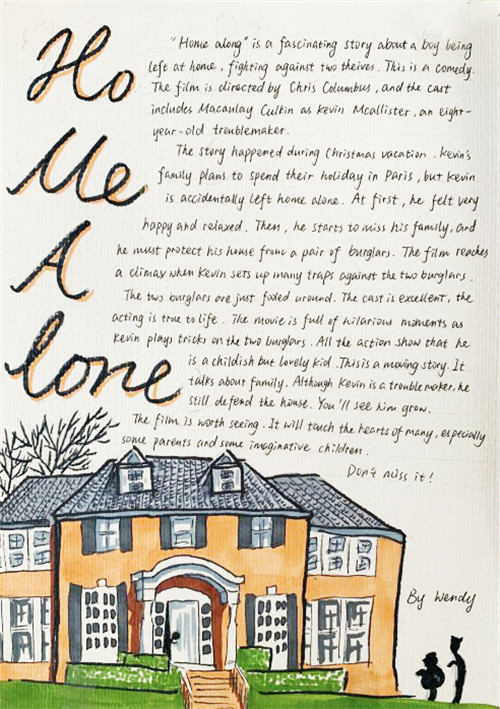 Ho
Me
A
lone
"Home along" is a fascinating story about a boy being
left at home, fighting against two theives. This is a comedy.
The film is directed by Chris Columbus, and the cast
includes Macaulay Culkin as Kevin Mcallister, an eight-
year-old troublemaker.
The story happened during Christmas vacation. Kevin's
family plans to spend their holiday in Paris, but Kevin
is accidentally left home alone. At first, he felt very
happy and relaxed. Then, he starts to miss his family, and
he must protect his house from a pair of burglars. The film reaches
a climax when Kevin sets up many traps against the two burglars.
The two burglars are just fooled around. The cast is excellent, the
acting is true to life. The movie is full of hilarious moments as
Kevin plays tricks on the two burglars. All the action show that he
is a childish but lovely kid. This is a moving story. It
talks about family. Although Kevin is a trouble maker, he
still defend the house. You'll see him grow.
The film is worth seeing. It will touch the hearts of many, especially
some parents and some imaginative children.
Don't miss it!
By Wendy